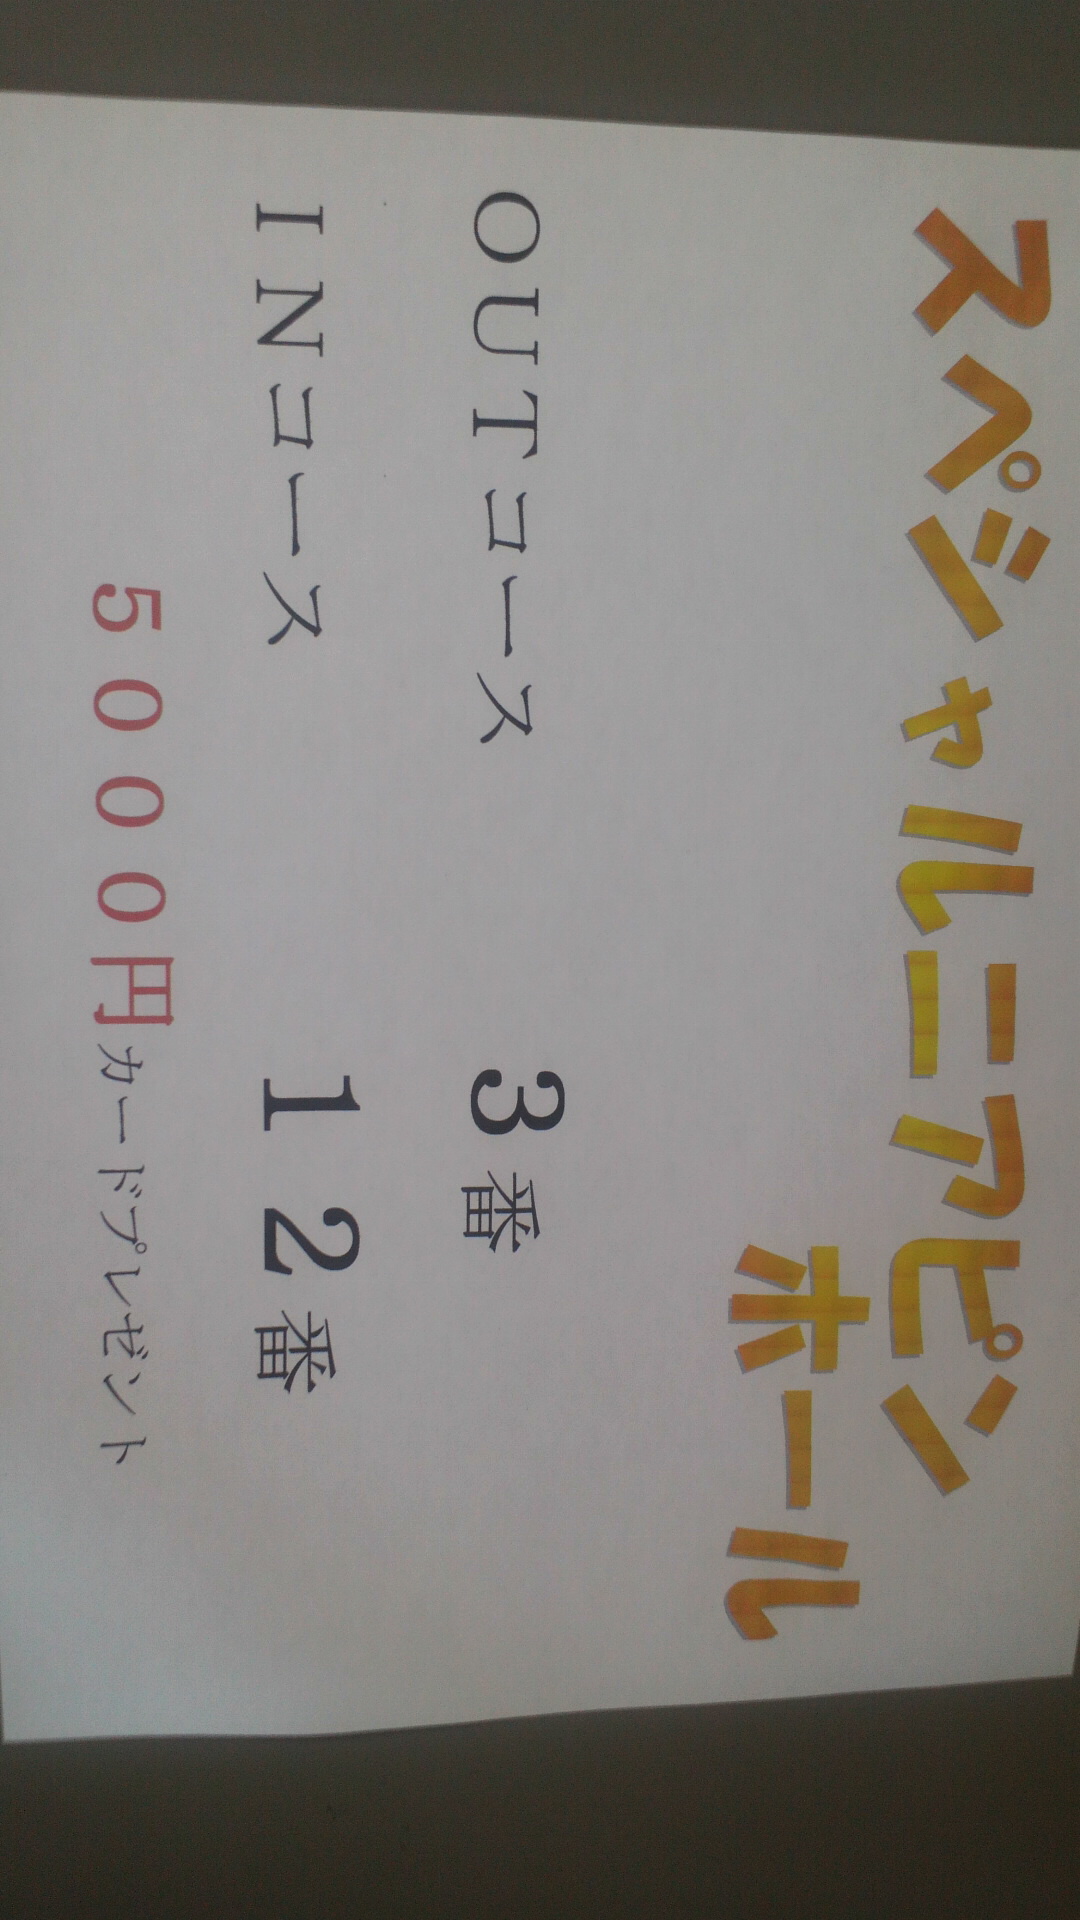 スペシャルニアピン
ホール
OUTコース 3番
INコース 12番
5000円カードプレゼント